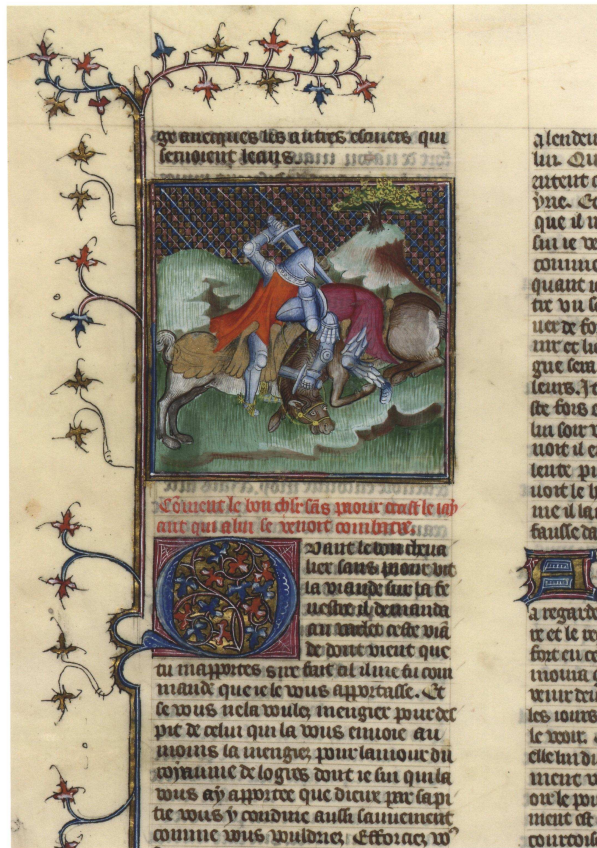 ge avecques les autres escuiers qui
servoient leans.
Coment le bon chlr sãs paour
ant qui a lui se venoit combatre.
Quant le bon cheva
lier sans paour vit
la viande sur la fe
nestre il demanda
au varlet ceste viã
de dont vient que
tu mapportes sire fait cil il me fu com
mande que ie le vous apportasse. Et
se vous ne la voulez mengier pour des
pit de celui qui la vous envoie au
moins la mengiez pour lamour du
royaume de logres dont ie sui qui la
vous ay apportee que dieux par sa pi
tie vous y conduie aussi sauvement
comme vous vouldriez. Efforciez voꝰ
a lendem
lui. Qu
yne. Et
que il
sui ie ve
comme
quant ie
tre un se
uer de fo
gue sera
leurs. Je
ste fors
lui soit
voit il e
voit le
me il la
fausse da
a regarde
re et le re
fort eu ce
venir
les iours
le veoir.
elle lui di
mene v
oir le pou
ment est
courtois